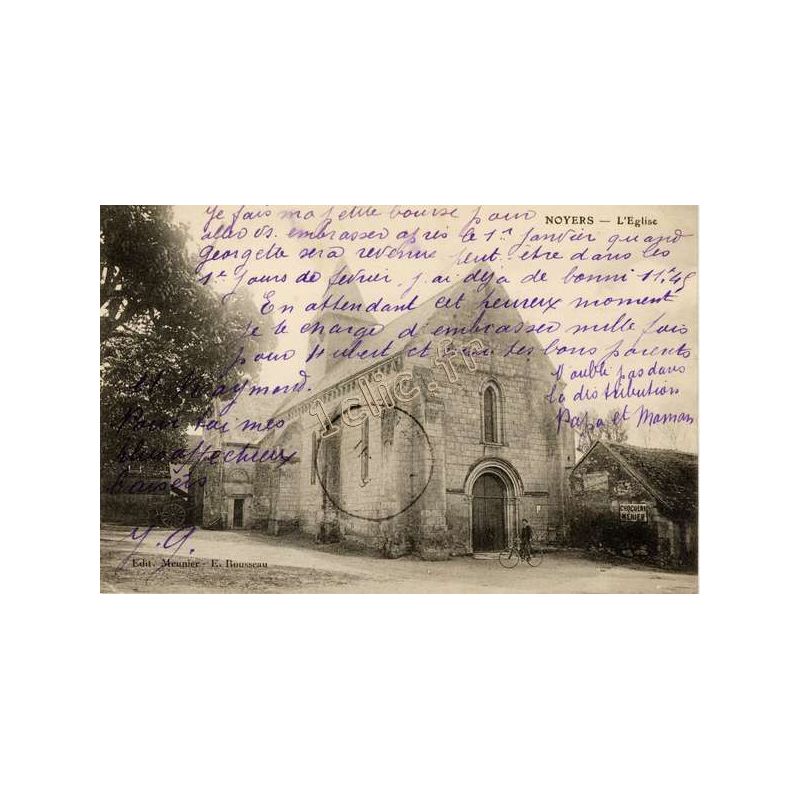 NOYERS — L'Eglise
Je fais ma petite bourse pour
aller vs. embrasser après le 1er janvier quand
Georgette sera revenue peut-être dans les
1er jours de février, j'ai déjà de bonni 11f45
En attendant cet heureux moment
je te charge d'embrasser mille fois
pour Hubert et tes bons parents
et Raymond.
N'oublie pas dans
la distribution
Papa et Maman
Pour toi mes
plus affectueux
baisers
Y. G.
1clic.fr
CHOCOLAT
MENIER
Edit. Meunier - E. Rousseau